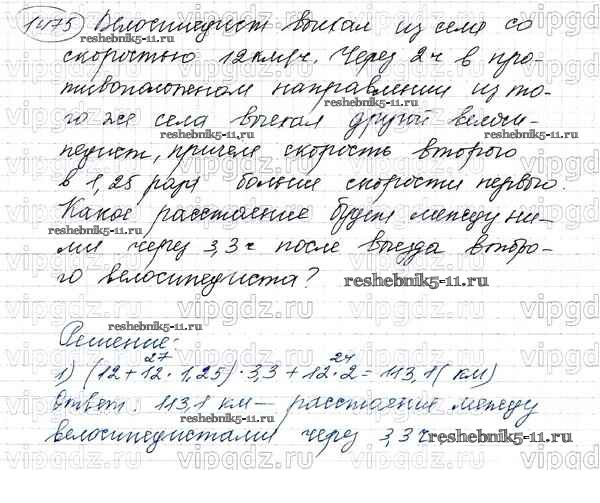 1475 Велосипедист выехал из села со
скоростью 12 км/ч. Через 2 ч в про-
тивоположном направлении из то-
го же села выехал другой велоси-
педист, причем скорость второго
в 1,25 раз больше скорости первого.
Какое расстояние будет между ни-
ми через 3,3 ч после выезда второ-
го велосипедиста?
reshebnik5-11.ru
Решение:
27 24
1) (12 + 12 · 1,25) · 3,3 + 12 · 2 = 113,1 (км)
Ответ: 113,1 км — расстояние между
велосипедистами через 3,3 ч
reshebnik5-11.ru
vipgdz.ru